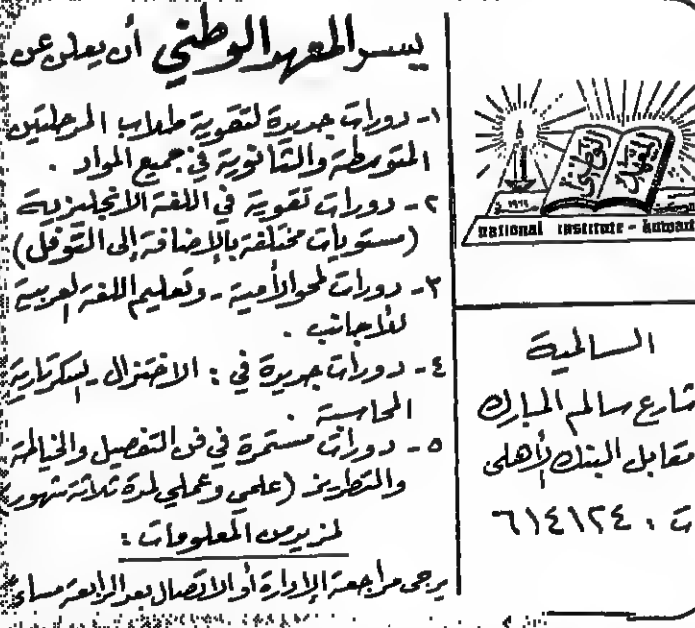 يسر المعهد الوطني أن يعلن عن
١- دورات جديدة لتقوية طلاب المرحلتين
المتوسطة والثانوية في جميع المواد .
٢- دورات تقوية في اللغة الانجليزية
(مستويات مختلفة بالإضافة إلى التوفل)
٣- دورات لمحو الأمية - وتعليم اللغة العربية
للأجانب .
٤- دورات جديدة في : الاختزال - السكرتارية
المحاسبة .
٥- دورات مستمرة في فن التفصيل والخياطة
والتطريز (علمي وعملي لمدة ثلاثة شهور
لمزيد من المعلومات :
يرجى مراجعة الإدارة أو الاتصال بعد الرابعة مساءً
المعهد الوطني
national institute - kuwait
السالمية
شارع سالم المبارك
مقابل البنك الأهلي
ت : ٦١٤١٢٤